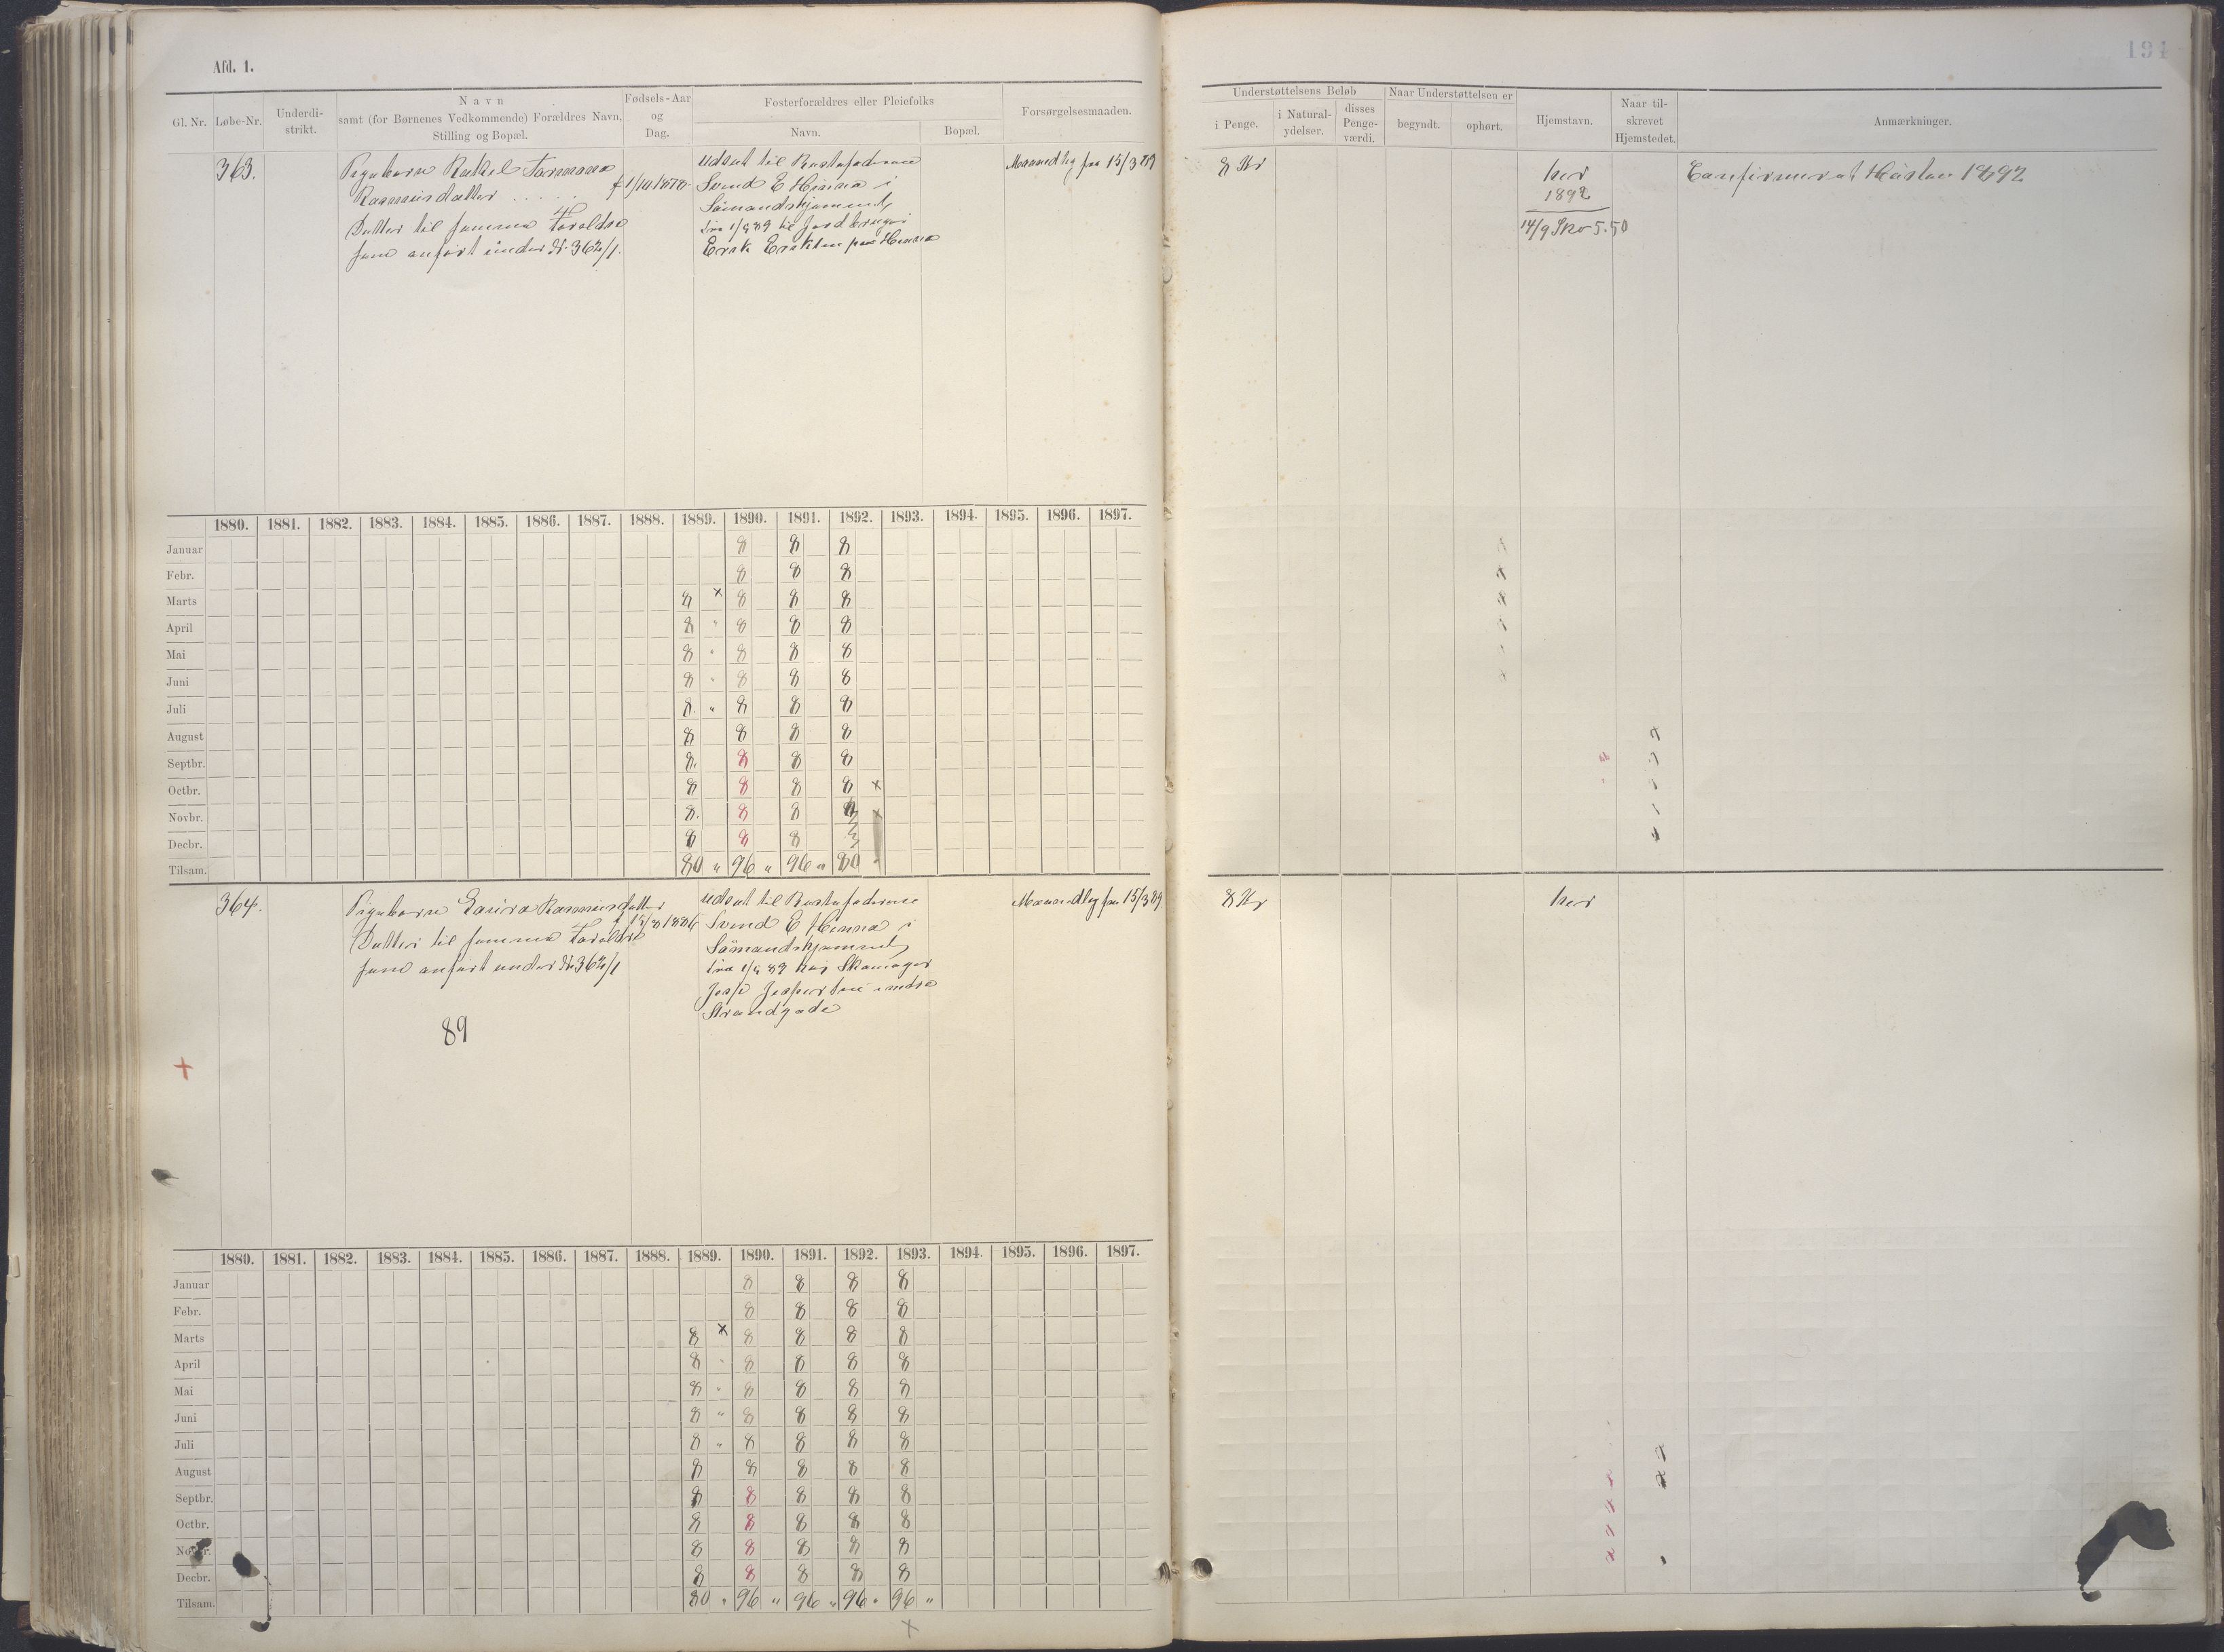 Afd. 1.
194
Gl. Nr.
Løbe-Nr.
Underdi-
strikt.
Navn
samt (for Børnenes Vedkommende) Forældres Navn,
Stilling og Bopæl.
Fødsels-Aar
og
Dag.
Fosterforældres eller Pleiefolks
Navn.
Bopæl.
Forsørgelsesmaaden.
Understøttelsens Beløb
i Penge.
i Natural-
ydelser.
disses
Penge-
værdi.
Naar Understøttelsen er
begyndt.
ophørt.
Hjemstavn.
Naar til-
skrevet
Hjemstedet.
Anmærkninger.
363.
Pigebarn Rakel Tormona
Rasmusdatter . . . . .
Datter til samma Foreldre
som anført under № 362/1.
f 1/10 1878
Udsat til
Svend E Hinna i
Sömandshjemmet
fra 1/9 89 til Jordbruger
Erik Eriksen paa Hinna
Maanedlig fra 15/3 89
8 Kr
her
1892
14/9 Sko 5.50
Confirmeret Hösten 1892
1880. 1881. 1882. 1883. 1884. 1885. 1886. 1887. 1888. 1889. 1890. 1891. 1892. 1893. 1894. 1895. 1896. 1897.
Januar 8 8 8
Febr. 8 8 8
Marts 8 x 8 8 8
April 8 " 8 8 8
Mai 8 " 8 8 8
Juni 8 " 8 8 8
Juli 8. " 8 8 8
August 8 8 8 8
Septbr. 8. 8 8 8
Octbr. 8 8 8 8 x
Novbr. 8. 8 8 x
Decbr. 8 8 8
Tilsam. 80 " 96 " 96 " 80 "
364.
Pigebarn Rasmusdatter
Datter til samma Foreldre
som anført under № 362/1
f 15/8 1886
89
Udsat til
Svend E Hinna i
Sömandshjemmet
fra 1/9 89 hos Skomager
Josp Jespersen nedre
Strandgade
Maanedlig fra 15/3 89
8 Kr
her
1880. 1881. 1882. 1883. 1884. 1885. 1886. 1887. 1888. 1889. 1890. 1891. 1892. 1893. 1894. 1895. 1896. 1897.
Januar 8 8 8 8
Febr. 8 8 8 8
Marts 8 x 8 8 8 8
April 8 " 8 8 8 8
Mai 8 " 8 8 8 8
Juni 8 " 8 8 8 8
Juli 8 " 8 8 8 8
August 8 8 8 8 8
Septbr. 8 8 8 8 8
Octbr. 8 8 8 8 8
Novbr. 8 8 8 8 8
Decbr. 8 8 8 8 8
Tilsam. 80 " 96 " 96 " 96 " 96 "